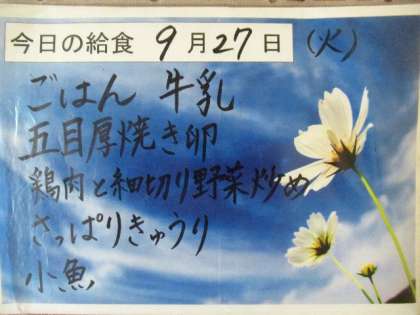 今日の給食 9月27日 (火)
ごはん 牛乳
五目厚焼き卵
鶏肉と細切り野菜炒め
さっぱりきゅうり
小魚